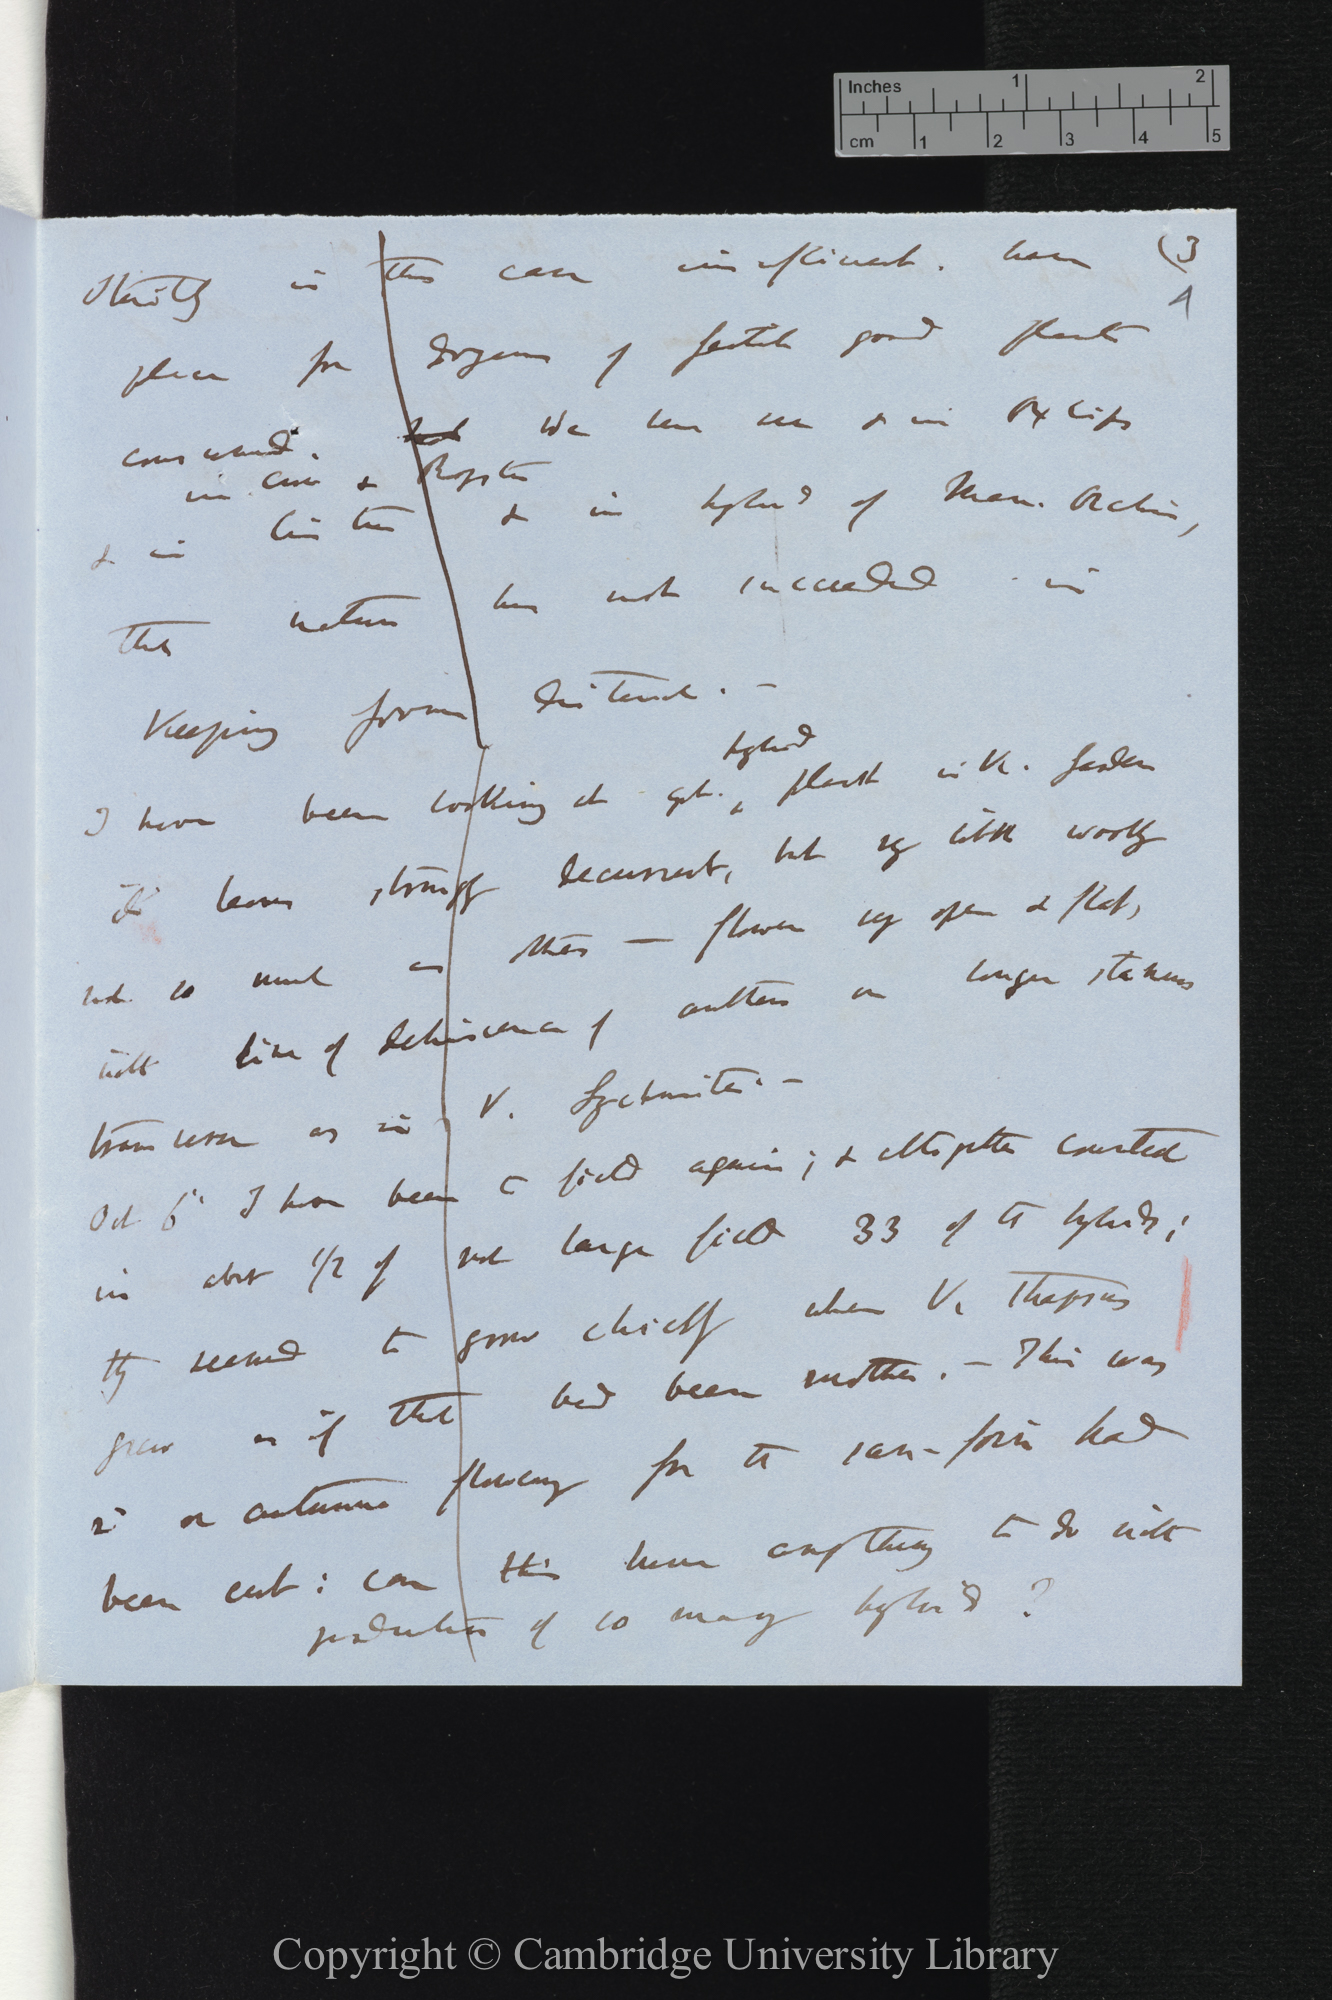 Inches 1 2
cm 1 2 3 4 5
(3
A
Sterility in this case insufficient. have
place for degrees of fertile good plants
concerned. We have seen & in Oxlips
in &
& in & in hybrid of Man. Orchis,
that nature has not succeeded in
Keeping forms distinct. —
hybrid
I have been looking at gt. plant in K. Garden
leaves strongly decurrent, but vy little woolly
not so much as others — flower vy open & flat,
with line of dehiscence of anthers on longer stamens
transverse as in V. Lychnitis. —
Oct 6th I have been to field again; & altogether counted
in about 1/2 of not large field 33 of the hybrids;
they seemed to grow chiefly where V. Thapsus
grew as if that had been mother. — This was
2d or autumn flowering for the san-foin had
been cut: can this have anything to do with
production of so many hybrids?
Copyright © Cambridge University Library